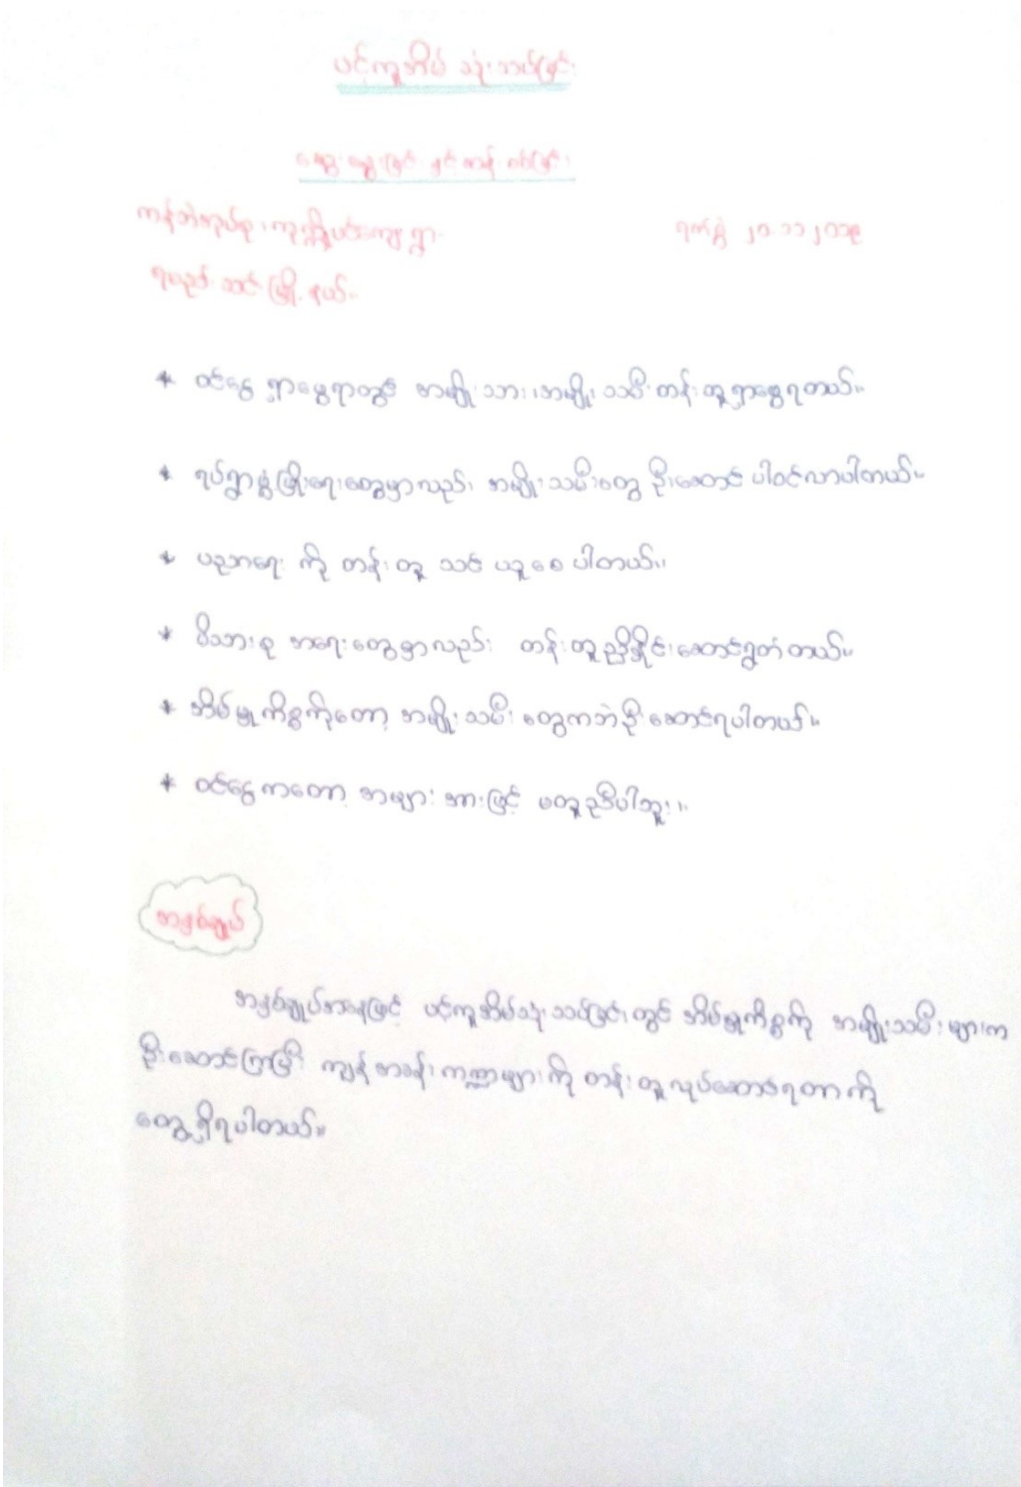 ပင့်ကူအိမ် သုံးသပ်ခြင်း
ဆွေးနွေးခြင်း နှင့် တန် စစ်ခြင်း
ရက်စွဲ ၂၁ ၁၁ ၂၀၁၃
ရမည်း သင်း မြို့ နယ်။
* ဝင်ငွေ ရှာဖွေရာတွင် အမျိုး သား၊ အမျိုး သမီး တန်း တူ ရှာဖွေရတယ်။
* ရပ်ရွာဖွံ့ဖြိုးရေးတွေမှာလည်း အမျိုးသမီးတွေ ဦးဆောင် ပါဝင်လာပါတယ်။
* ပညာရေး ကို တန်း တူ သင် ယူ စေ ပါတယ်။
* မိသားစု အရေးတွေမှာလည်း တန်း တူ ညှိနှိုင်းဆောင်ရွက် တယ်။
* အိမ်မှုကိစ္စကိုတော့ အမျိုးသမီး တွေကဘဲ ဦးဆောင်ရပါတယ်။
* ဝင်ငွေကတော့ အများ အားဖြင့် မတူညီပါဘူး။
အနှစ်ချုပ်
အနှစ်ချုပ်အနေဖြင့် ပင့်ကူအိမ်သုံးသပ်ခြင်းတွင် အိမ်မှုကိစ္စကို အမျိုးသမီးများက
ဦးဆောင်ကြပြီး ကျန် အခန်းကဏ္ဍများကို တန်းတူ လုပ်ဆောင်ရတာကို
တွေ့ရှိရပါတယ်။